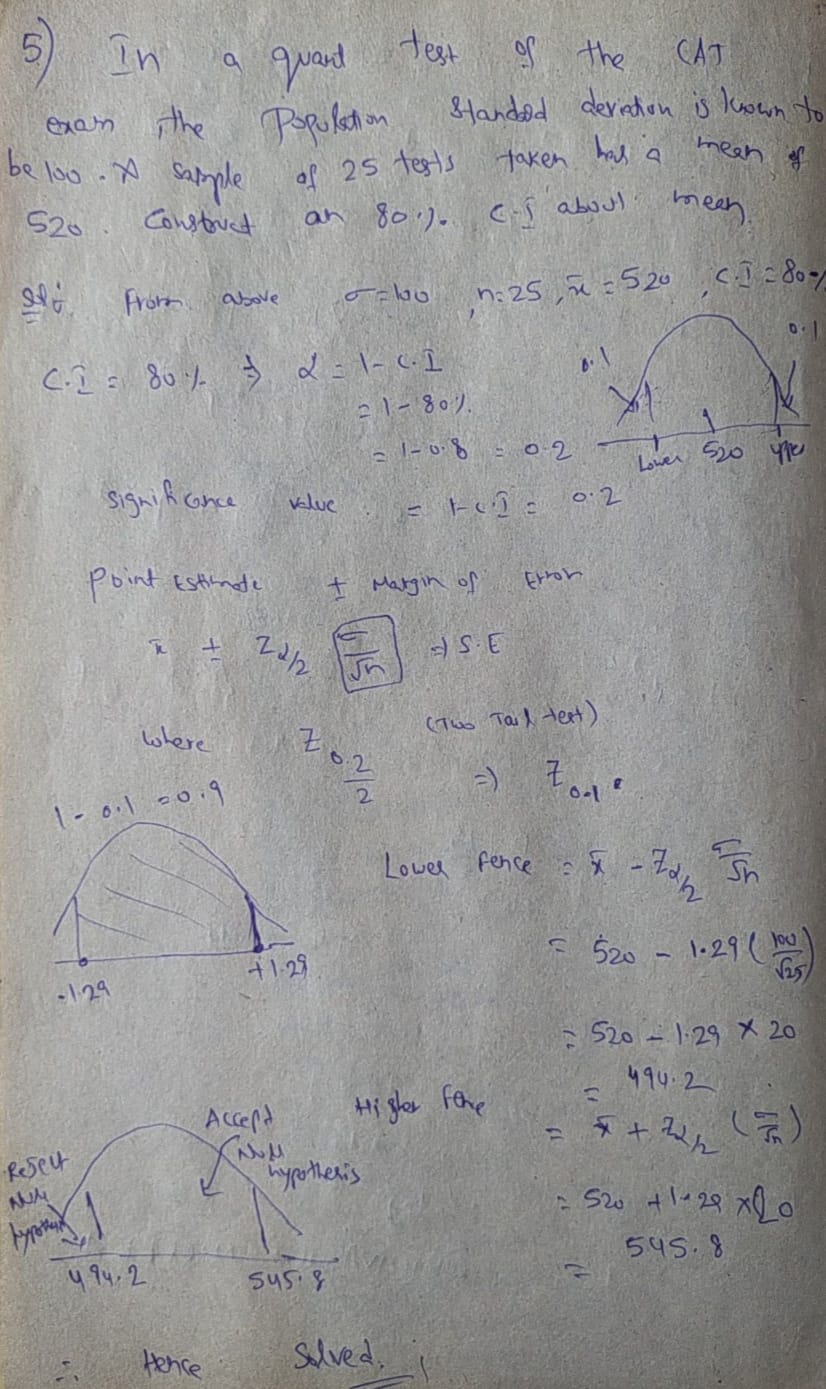 5) In a quant test of the CAT
exam, the Population Standard deviation is known to
be 100. A sample of 25 tests taken has a mean of
520. Construct an 80% C.I about mean.
Sol: From above σ=100, n=25, x̄=520, C.I=80%
C.I = 80% ⇒ α = 1-C.I
= 1-80%
= 1-0.8 = 0.2
0.1
0.1
Lower 520 upper
Significance value = 1-C.I = 0.2
Point Estimate ± Margin of Error
x̄ ± Zα/2 σ/√n ⇒ S.E
where Z0.2/2 (Two Tail test) ⇒ Z0.1.
1-0.1 = 0.9
-1.29 +1.29
Lower fence = x̄ - Zα/2 σ/√n
= 520 - 1.29 (100/√25)
= 520 - 1.29 × 20
= 494.2
Higher fence = x̄ + Zα/2 (σ/√n)
= 520 + 1.29 × 20
= 545.8
Reject Null hypothesis
Accept Null hypothesis
494.2 545.8
∴ Hence Solved.